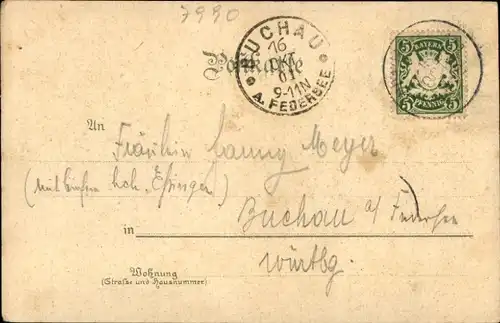 7990
BUCHAU
16
OKT
01
9-11N
A. FEDERSEE
Postkarte
BAYERN
5 5
5 PFENNIG 5
An
Fräulein Fanny Meyer
in Buchau a/ Federsee
Württbg.
Wohnung
(Straße und Hausnummer)